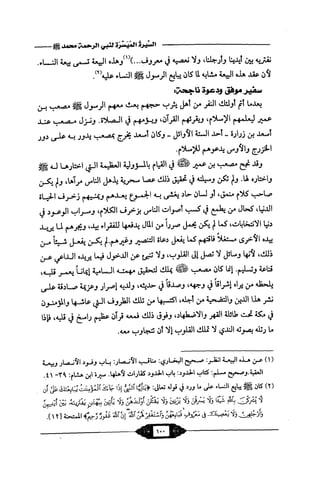 السيرة الميسرة لنبي الرحمة محمد ﷺ
نفتريه بين أيدينا وأرجلنا، ولا نعصيه في معروف...)(١)وهذه البيعة تسمى بيعة النساء،
لأن عقد هذه البيعة مشابه لما كان يبايع الرسول ﷺ النساء عليه(٢).
سفير موفق ودعوة ناجحة:
بعدما أتم أولئك النفر من أهل يثرب حجهم بعث معهم الرسول ﷺ مصعب بن
عمير ليعلمهم الإسلام، ويقرئهم القرآن، ويؤمهم في الصلاة. ونزل مصعب عند
أسعد بن زرارة - أحد الستة الأوائل - وكان أسعد يخرج بمصعب يدور به على دور
الخزرج والأوس يدعوهم للإسلام.
وقد نجح مصعب بن عمير ﷺ في القيام بالمسؤولية العظيمة التي اختارها له ﷺ
واختاره لها. ولم تكن وسيلته في تحقيق ذلك عصا سحرية يذهل الناس مرآها، ولم يكن
صاحب كلام منمق، أو لسان حاد يغشى به الجموع يعدهم ويمنيهم زخرف الحياة
الدنيا، كحال من يطمع في كسب أصوات الناس بزخرف الكلام، وسراب الوعود في
دنيا الانتخابات، كما لم يكن يحمل صرراً من المال يدفعها للفقراء بيد، ويجرهم لما يريد
بيده الأخرى مستغلاً فاقتهم كما يفعل دعاة التنصير وغيرهم. لم يكن يفعل شيئاً من
ذلك، لأنها وسائل لا تصل إلى القلوب، ولا تنبئ عن الدخول فيما يريده الداعي عن
قناعة وتسليم. إنما كان مصعب ﷺ يملك لتحقيق مهمته السامية إيماناً يعمر قلبه،
يلحظه من يراه إشراقاً في وجهه، وصدقاً في حديثه، ولديه إصرار وعزيمة صادقة على
نشر هذا الدين والتضحية من أجله، اكتسبها من تلك الظروف التي عاشها والمؤمنون
في مكة تحت طائلة القهر والاضطهاد، وفوق ذلك فمعه قرآن عظيم راسخ في قلبه، فإذا
ما رتله بصوته الندي لا تملك القلوب إلا أن تتجاوب معه.
(١) عن هذه البيعة انظر: صحيح البخاري: مناقب الأنصار: باب وفود الأنصار وبيعة
العقبة.وصحيح مسلم: كتاب الحدود: باب الحدود كفارات لأهلها. سيرة ابن هشام: ٣٩-٤١.
(٢) كان ﷺ يبايع النساء على ما ورد في قوله تعالى: ﴿يَا أَيُّهَا النَّبِيُّ إِذَا جَاءَكَ الْمُؤْمِنَاتُ يُبَايِعْنَكَ عَلَىٰ أَن
لَّا يُشْرِكْنَ بِاللَّهِ شَيْئًا وَلَا يَسْرِقْنَ وَلَا يَزْنِينَ وَلَا يَقْتُلْنَ أَوْلَادَهُنَّ وَلَا يَأْتِينَ بِبُهْتَانٍ يَفْتَرِينَهُ بَيْنَ أَيْدِيهِنَّ
وَأَرْجُلِهِنَّ وَلَا يَعْصِينَكَ فِي مَعْرُوفٍ فَبَايِعْهُنَّ وَاسْتَغْفِرْ لَهُنَّ اللَّهَ إِنَّ اللَّهَ غَفُورٌ رَّحِيمٌ﴾ الممتحنة (١٢).
١٠٠